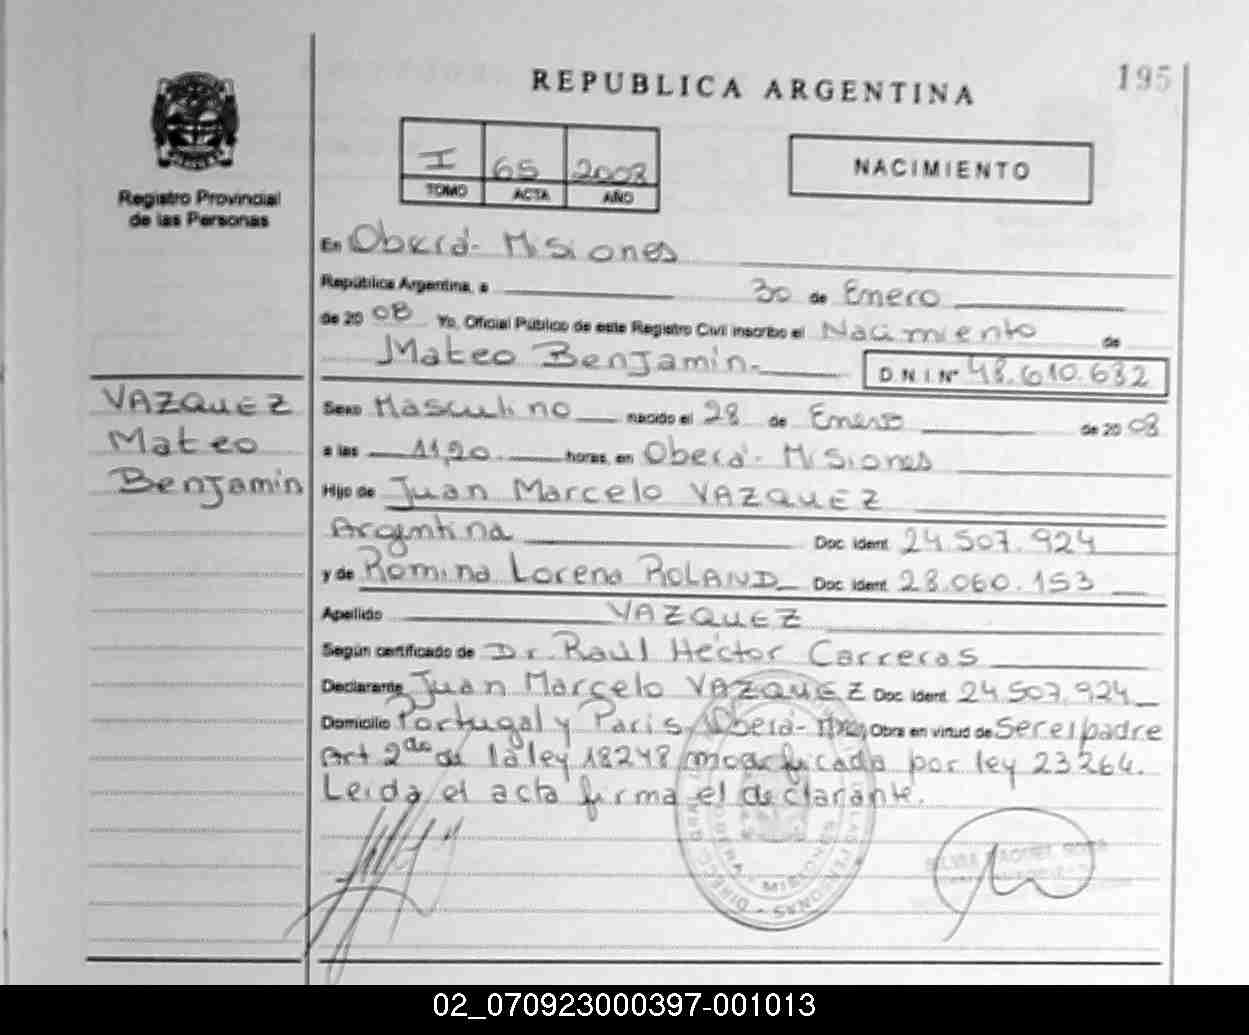 195
REPUBLICA ARGENTINA
Registro Provincial
de las Personas
I 65 2008
TOMO ACTA AÑO
NACIMIENTO
En Oberá - Misiones
República Argentina, a 30 de Enero
de 20 08 Yo, Oficial Público de este Registro Civil inscribo el Nacimiento de
Mateo Benjamín.- D.N.I. Nº 48.610.632
VAZQUEZ
Mateo
Benjamín
Sexo Masculino nacido el 28 de Enero de 20 08
a las 11,20 horas, en Oberá - Misiones
Hijo de Juan Marcelo VAZQUEZ
Argentina Doc. Ident. 24.507.924
y de Romina Lorena ROLAND Doc. Ident. 28.060.153
Apellido VAZQUEZ
Según certificado de Dr. Raúl Héctor Carreras
Declarante Juan Marcelo VAZQUEZ Doc. Ident. 24.507.924
Domicilio Portugal y París, Oberá - Obra en virtud de Ser el padre
Art 2do de la ley 18248 modificada por ley 23264.
Leída el acta firma el declarante.
MISIONES
02_070923000397-001013